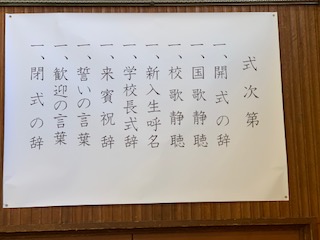 式次第
一、開式の辞
一、国歌静聴
一、校歌静聴
一、新入生呼名
一、学校長式辞
一、来賓祝辞
一、誓いの言葉
一、歓迎の言葉
一、閉式の辞